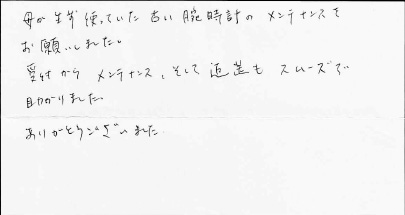 母が生前使っていた古い腕時計のメンテナンスを
お願いしました。
受付からメンテナンス、そして返送もスムーズで
助かりました
ありがとうございました